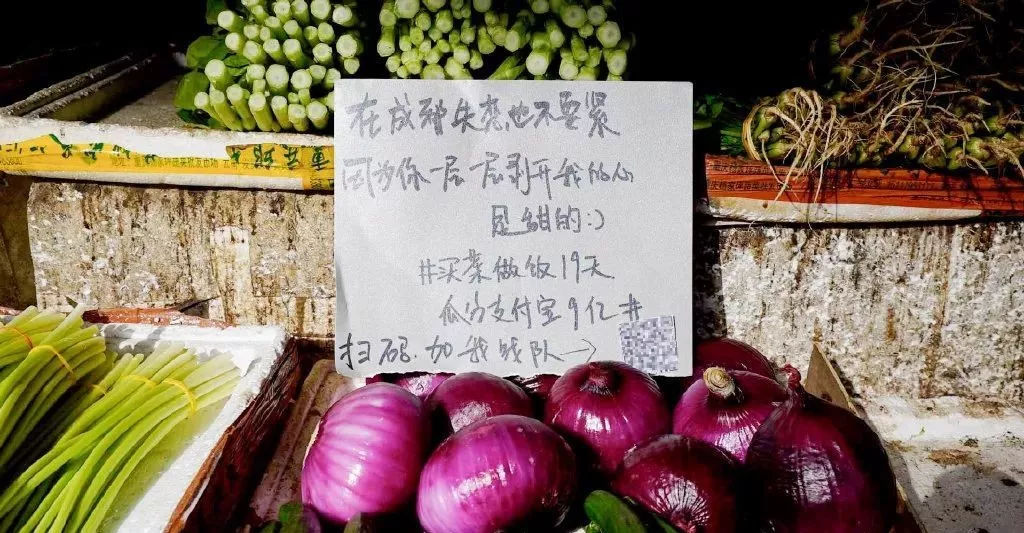 在成种失恋也不要紧
因为你一层一层剥开我的心
是甜的:)
#买菜做饭19天
瓜分支付宝9亿#
扫码.加我战队→